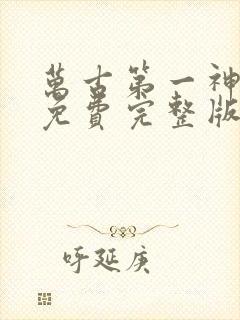 萬古第一神
免費完整版
呼延庚